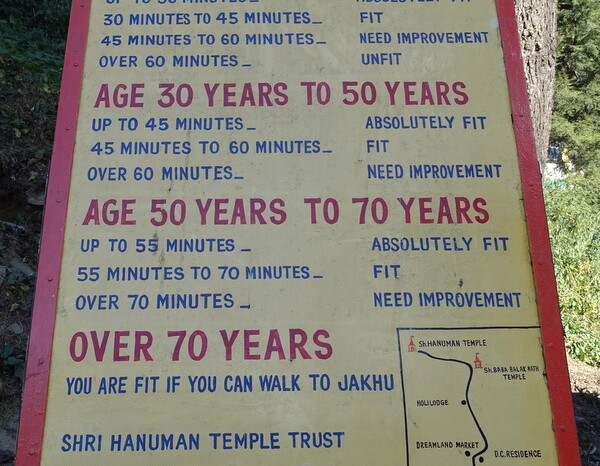 UP TO 30 MINUTES_ ABSOLUTELY FIT
30 MINUTES TO 45 MINUTES_ FIT
45 MINUTES TO 60 MINUTES_ NEED IMPROVEMENT
OVER 60 MINUTES_ UNFIT
AGE 30 YEARS TO 50 YEARS
UP TO 45 MINUTES_ ABSOLUTELY FIT
45 MINUTES TO 60 MINUTES_ FIT
OVER 60 MINUTES_ NEED IMPROVEMENT
AGE 50 YEARS TO 70 YEARS
UP TO 55 MINUTES_ ABSOLUTELY FIT
55 MINUTES TO 70 MINUTES_ FIT
OVER 70 MINUTES_ NEED IMPROVEMENT
OVER 70 YEARS
YOU ARE FIT IF YOU CAN WALK TO JAKHU
SHRI HANUMAN TEMPLE TRUST
Sh.HANUMAN TEMPLE
Sh.BABA BALAK NATH
TEMPLE
HOLILODGE
DREAMLAND MARKET
D.C.RESIDENCE